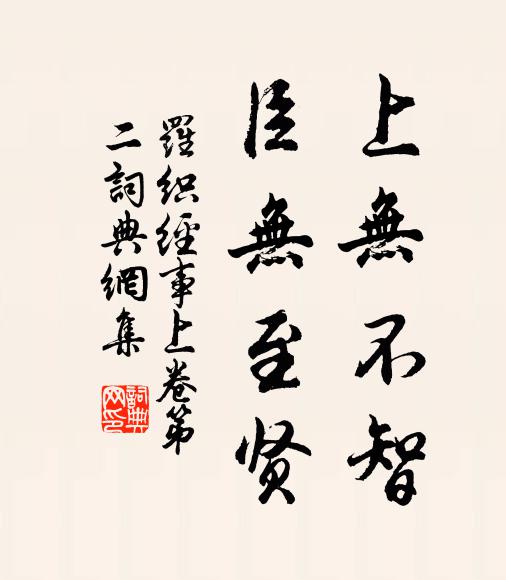 上無不智
臣無至贤
羅织經事上卷第
二詞典網集
詞典网印